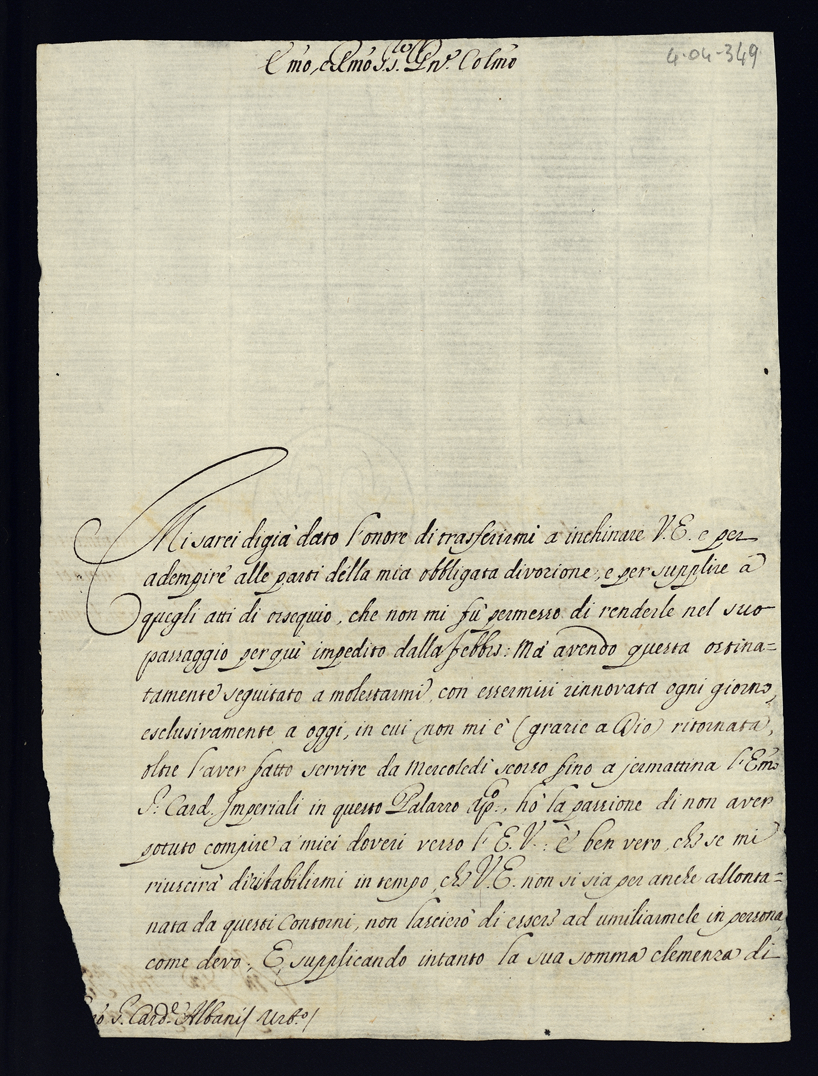 Emo, e Rmo Sig.r Pn'e Colmo
4-04-349
Mi sarei digià dato l'onore di trasferirmi a inchinare V.E. e per
adempire alle parti della mia obbligata divozione, e per supplire à
quegli atti di ossequio, che non mi fù permesso di renderle nel suo
passaggio per quì impedito dalla febbre: Mà avendo questa ostina=
tamente seguitato a molestarmi, con essermisi rinnovata ogni giorno,
esclusivamente a oggi, in cui non mi è (grazie a Dio) ritornata,
oltre l'aver fatto servire da Mercoledì scorso fino a jermattina l'Emo
S.r Card. Imperiali in questo Palazzo Ap.o, hò la passione di non aver
potuto compire a' miei doveri verso l'E.V.: è ben vero, che se mi
riuscirà di ristabilirmi in tempo, che V.E. non si sia per anche allonta=
nata da questi contorni, non lascierò di essere ad umiliarmele in persona,
come devo; E supplicando intanto la sua somma clemenza di
S. Card.e Albani / Urb.o /